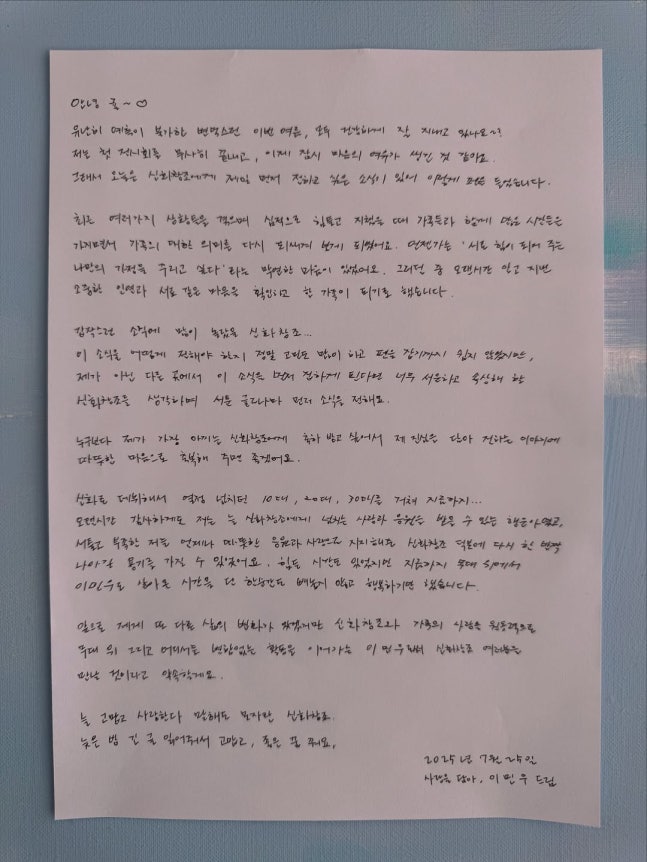 안녕 귤~♡
유난히 예측이 불가한 변덕스런 이번 여름, 모두 건강하게 잘 지내고 있나요~?
저는 첫 전시회를 무사히 끝내고, 이제 잠시 마음의 여유가 생긴 것 같아요.
그래서 오늘은 신화창조에게 제일 먼저 전하고 싶은 소식이 있어 이렇게 펜을 들었습니다.
최근 여러가지 상황들을 겪으며 심적으로 힘들고 지쳤을 때 가족들과 함께 많은 시간들은
가지면서 가족의 대한 의미를 다시 되새게 보게 되었어요. 언젠가는 '서로 힘이 되어 주는
나만의 가정을 꾸리고 싶다' 라는 막연한 마음이 있었어요. 그러던 중 오랜시간 알고 지낸
소중한 인연과 서로 같은 마음을 확인하고 한 가족이 되기로 했습니다.
갑작스런 소식에 많이 놀랐을 신화창조...
이 소식을 어떻게 전해야 하지 정말 고민도 많이 하고 펜을 잡기까지 쉽지 않았지만,
제가 아닌 다른 곳에서 이 소식을 먼저 전하게 된다면 너무 서운하고 속상해 할
신화창조를 생각하며 서툰 글로나마 먼저 소식을 전해요.
누구보다 제가 가장 아끼는 신화창조에게 축하 받고 싶어서 제 진심을 담아 전하는 이야기에
따뜻한 마음으로 축복해 주면 좋겠어요.
신화로 데뷔해서 열정 넘치던 10대, 20대, 30대를 거쳐 지금까지...
오랜시간 감사하게도 저는 늘 신화창조에게 넘치는 사랑과 응원을 받을 수 있는 행운아였고,
서툴고 부족한 저를 언제나 따뜻한 응원과 사랑으로 지지해준 신화창조 덕분에 다시 한 번
나아갈 용기를 가질 수 있었어요. 힘든 시간도 있었지만 지금까지 무대 위에서
이민우로 살아온 시간을 단 한순간도 빼놓지 않고 행복하기만 했습니다.
앞으로 제게 또 다른 삶의 변화가 있겠지만 신화창조와 가족의 사랑을 원동력으로
무대 위 그리고 어디서든 변함없는 활동을 이어가는 이민우로 신화창조 여러분을
만날 것이라고 약속할게요.
늘 고맙고 사랑한다 말해도 모자란 신화창조.
늦은 밤 긴 글 읽어줘서 고맙고, 좋은 꿈 꿔요.
2025년 7월 25일
사랑을 담아, 이민우 드림